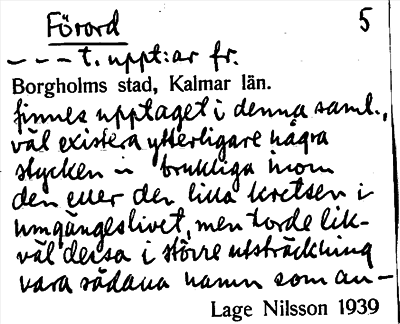 Förord 5
– – – t. uppt:ar fr.
Borgholms stad, Kalmar län.
finnes upptaget i denna saml.,
väl existera ytterligare några
stycken – brukliga inom
den eller den lilla kretsen i
umgängeslivet, men torde lik-
väl dessa i större utsträckning
vara sådana namn som an–
Lage Nilsson 1939